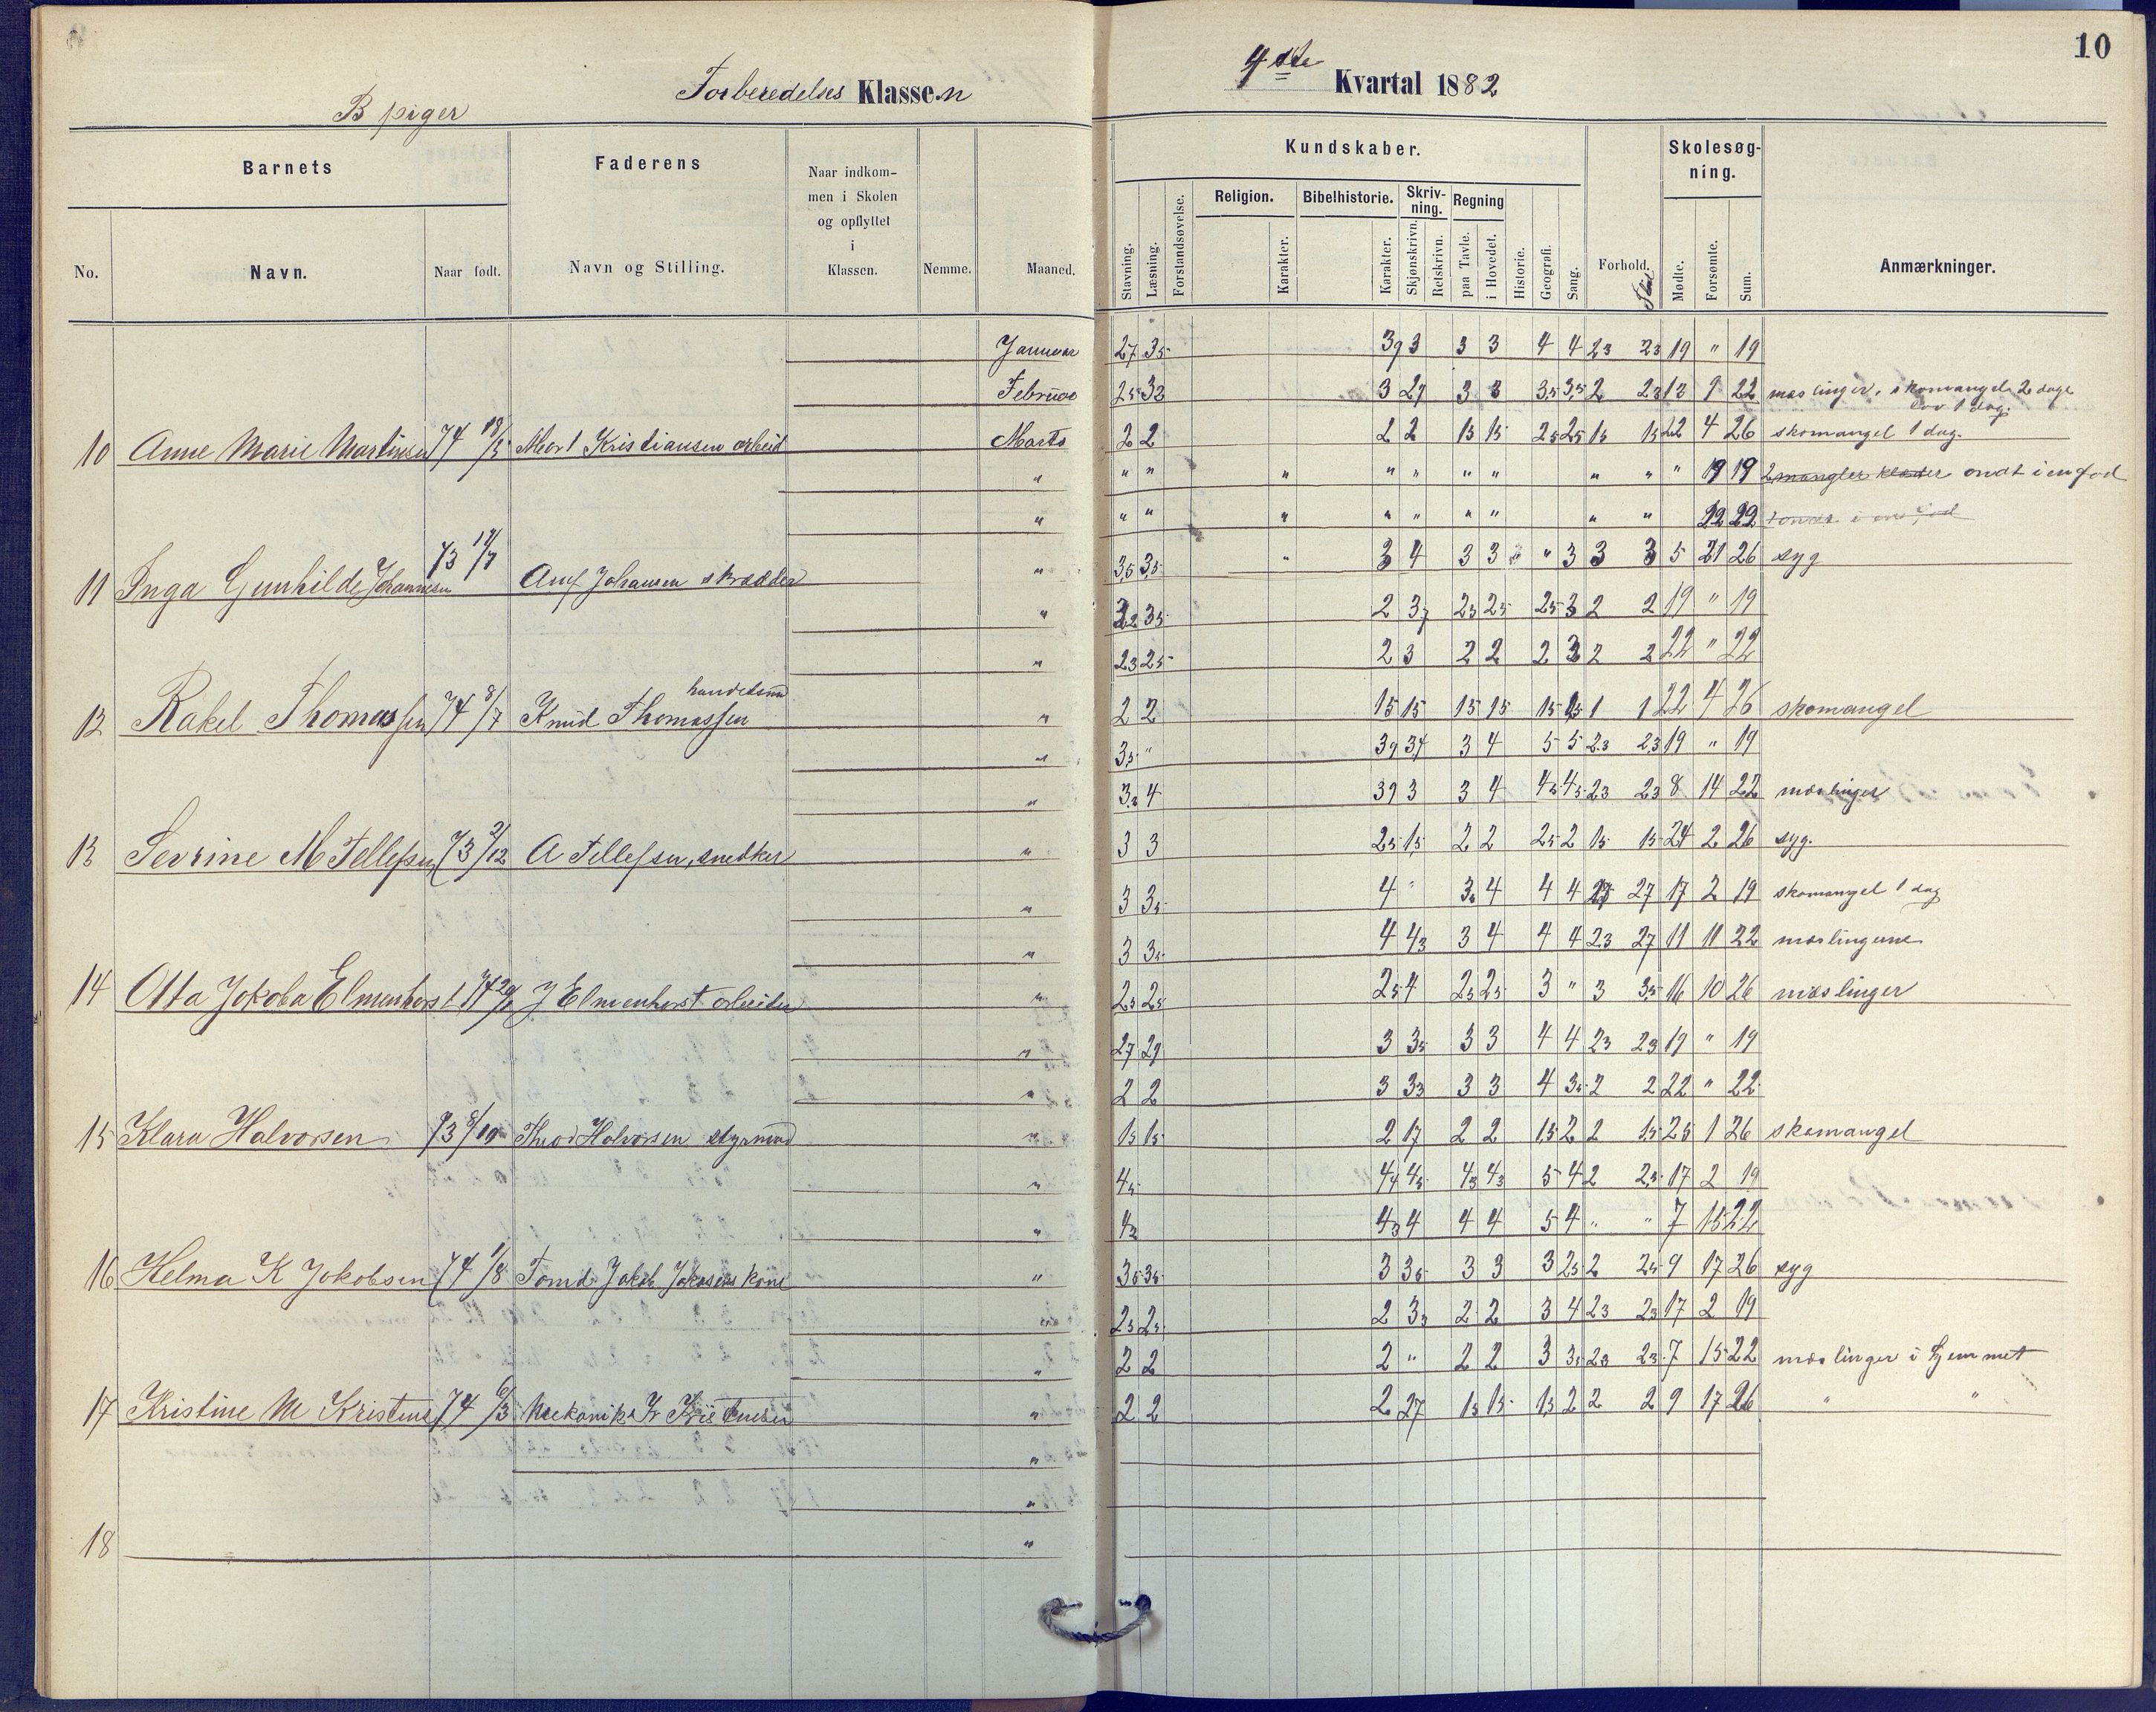 10
Forberedelses Klassen
4de Kvartal 1882
B piger
Barnets
Faderens
Naar indkom-
men i Skolen
og opflyttet
i
Klassen.
No.
Navn.
Naar født.
Navn og Stilling.
Nemme.
Maaned.
Kundskaber.
Skolesøg-
ning.
Religion.
Bibelhistorie.
Skriv-
ning.
Regning
Stavning.
Læsning.
Forstandsøvelse.
Karakter.
Karakter.
Skjønskrivn.
Retskrivn.
paa Tavle.
i Hovedet.
Historie.
Geografi.
Sang.
Forhold.
Flid
Mødte.
Forsømte.
Sum.
Anmærkninger.
Januar 27 35 39 3 3 3 4 4 23 23 19 " 19
Februar 25 32 3 27 3 3 35 35 2 23 13 9 22 mæslinger, skomangel 2 dage
lov 1 dag.
10 Anne Marie Martinsen 74 18/5 Kristiansen arbeid Marts 2 2 2 2 15 15 25 25 15 15 22 4 26 skomangel 1 dag.
" " " " " " " " " " " " 19 19 mangler klæder ondt i en fod
" " " " " " " " " " 22 22 i en fod
11 Inga Gunhilde Johannesen 73 17/7 Johansen skrædder " 35 35 " 3 4 3 3 " 3 3 3 5 21 26 syg
" 22 35 2 37 25 25 25 3 2 2 19 " 19
" 23 25 2 3 2 2 2 3 2 2 22 " 22
handelsmd
12 Rakel Thomassen 74 8/7 Knud Thomassen " 2 2 15 15 15 15 15 15 1 1 22 4 26 skomangel
" 35 " 39 34 3 4 5 5 23 23 19 " 19
" 33 4 39 3 3 4 45 45 23 23 8 14 22 mæslinger
13 Sevrine M Tellefsen 73 2/12 A Tellefsen, snedker " 3 3 25 15 2 2 25 2 15 15 24 2 26 syg.
" 3 35 4 " 3 4 4 4 27 17 2 19 skomangel 1 dag
" 3 35 4 43 3 4 4 4 23 27 11 11 22 mæslingerne
14 Otta Jokoba Elmenhorst 74 J Elmenhorst arbeider " 25 25 25 4 25 25 3 " 3 35 16 10 26 mæslinger
" 27 29 3 35 3 3 4 4 23 23 19 " 19
" 2 2 3 33 3 3 4 35 2 2 22 " 22
15 Klara Halvorsen 73 8/10 Theod Halvorsen styrmand " 15 15 2 17 2 2 15 2 2 15 25 1 26 skomangel
" 45 44 45 43 43 5 4 2 25 17 2 19
" 43 43 4 4 4 5 4 " " 7 15 22
16 Helma K Jokobsen 74 1/8 Tomd. Jakob Jakosens kone " 35 35 3 35 3 3 3 25 2 25 9 17 26 syg
" 25 25 2 33 2 2 3 4 23 23 17 2 19
" 2 2 2 " 2 2 3 35 23 23 7 15 22 mæslinger i hjemmet
17 Kristine M Kristens 74 6/3 Mekanik Kr Kristensen " 2 2 2 27 15 15 15 2 2 2 9 17 26 " "
"
"
18 "